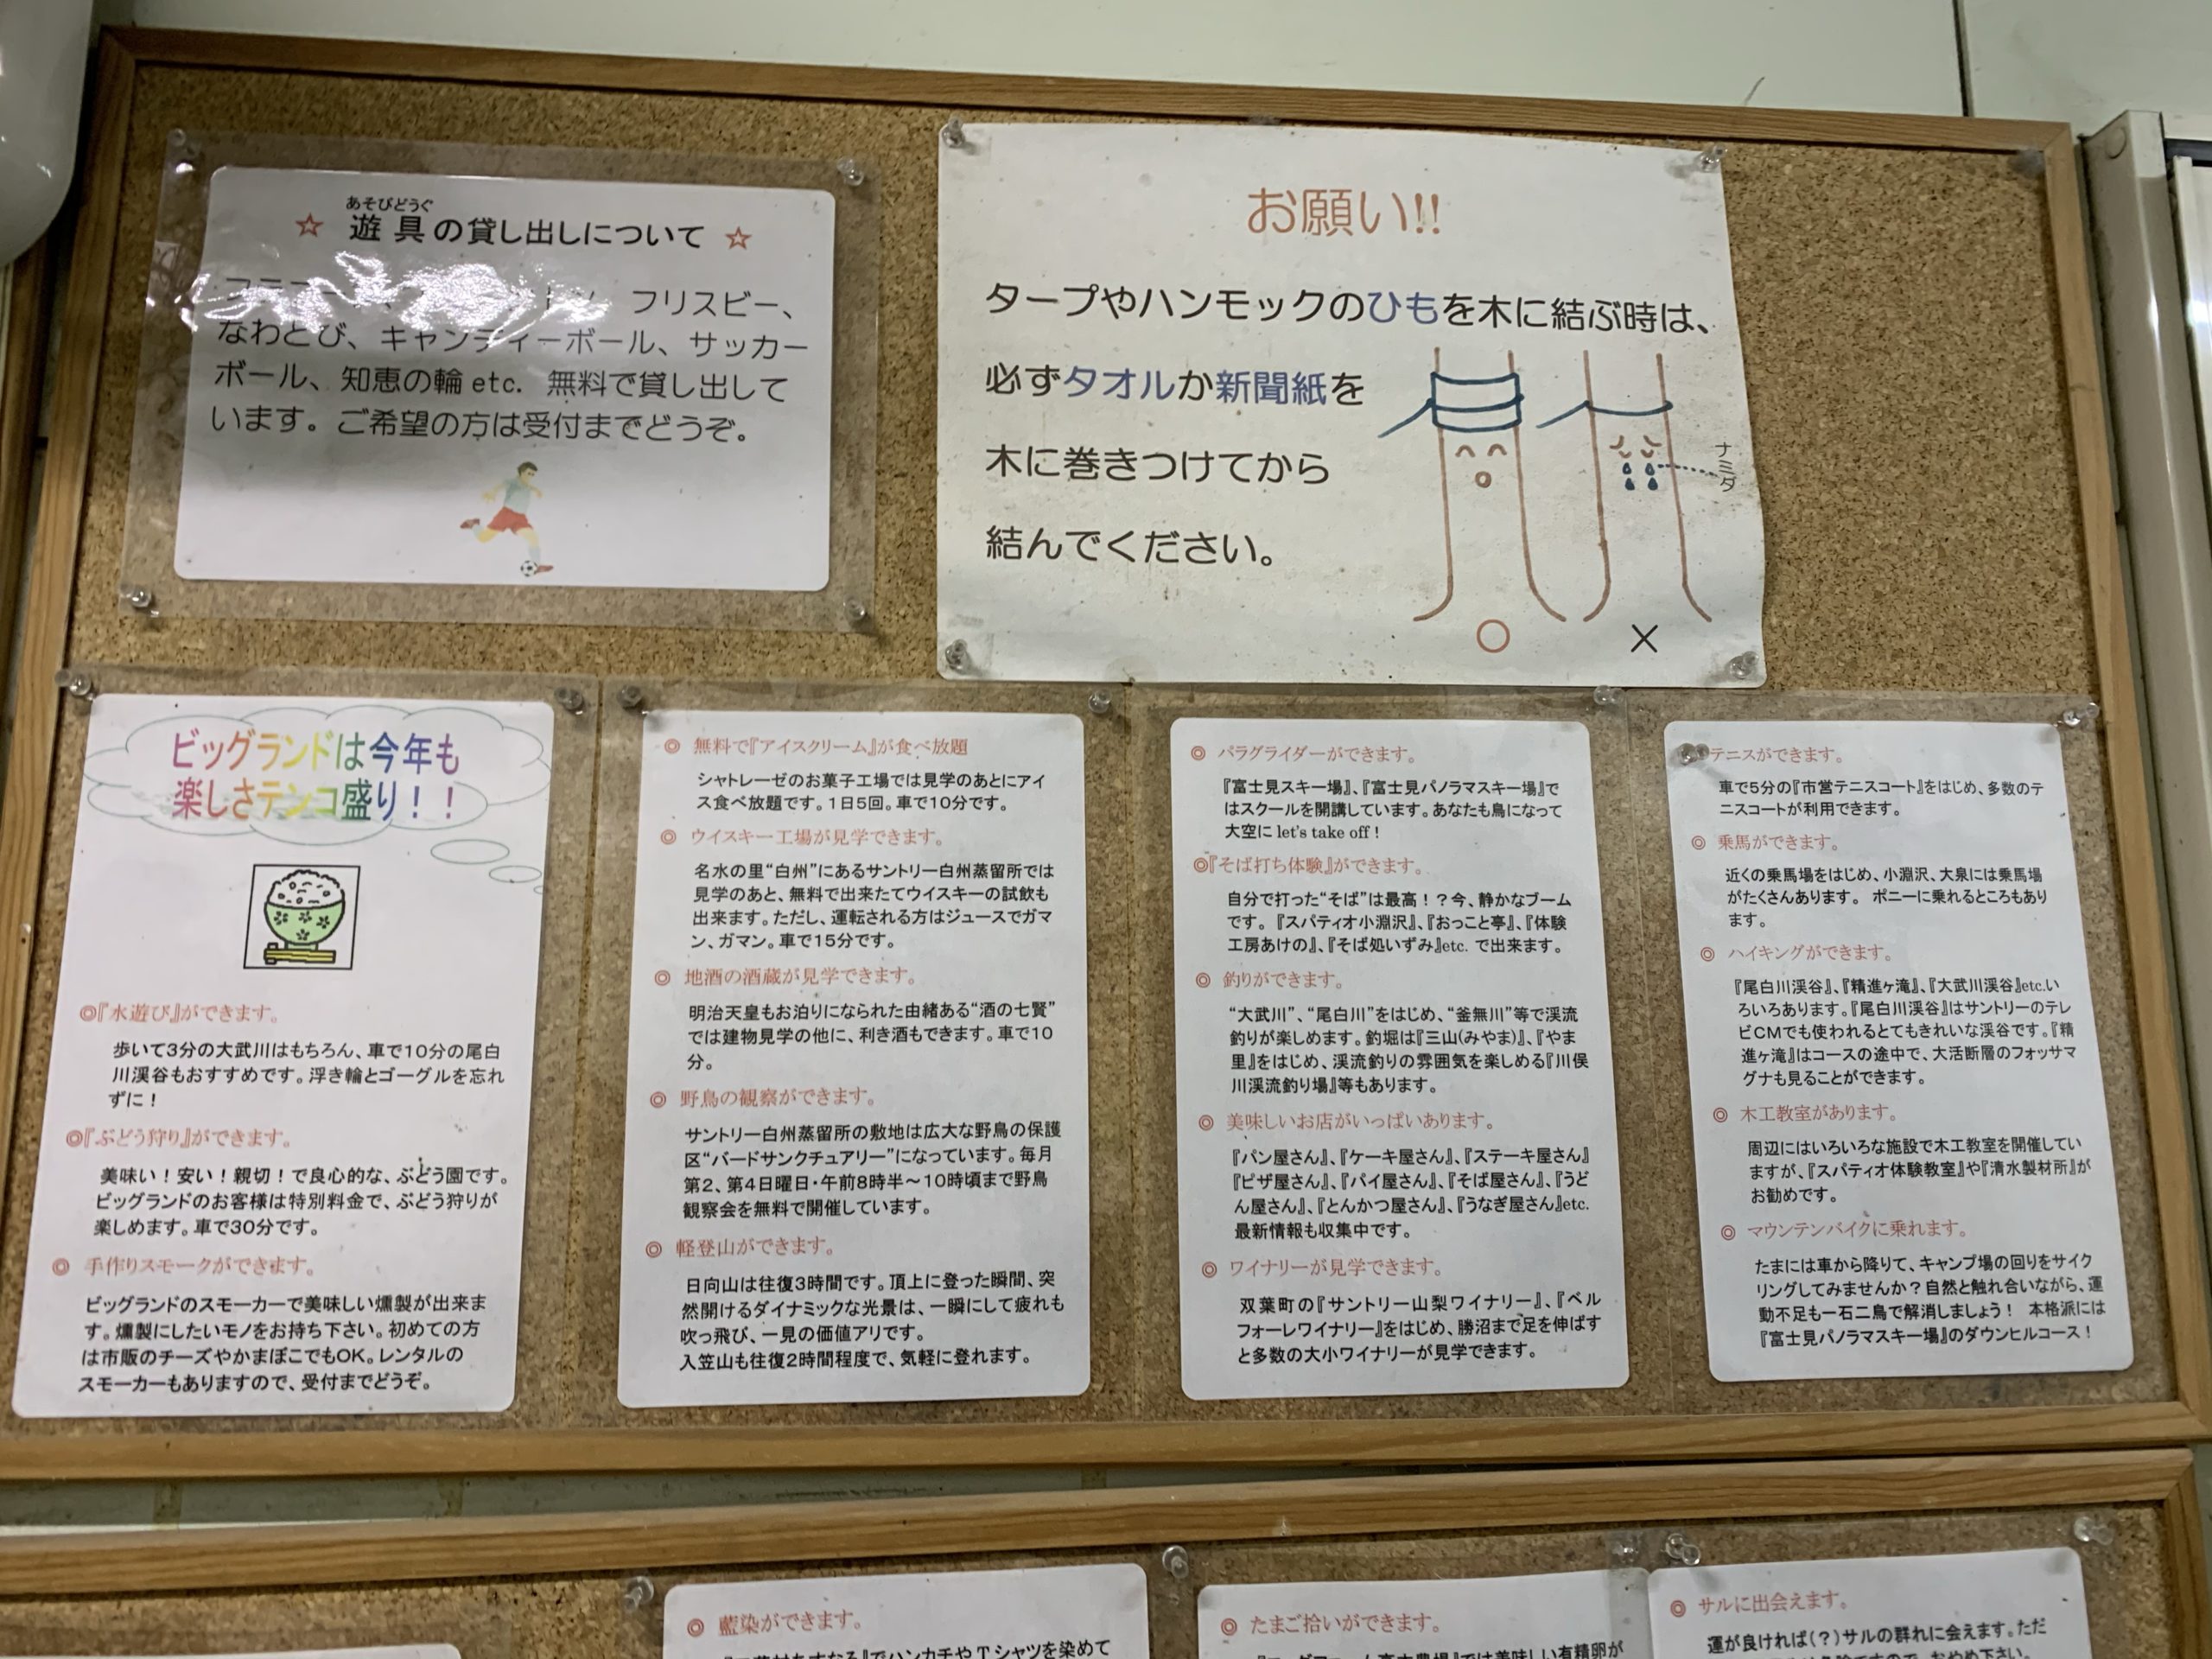 あそびどうぐ
☆ 遊具の貸し出しについて ☆
フリスビー、
なわとび、キャンディーボール、サッカー
ボール、知恵の輪 etc. 無料で貸し出して
います。ご希望の方は受付までどうぞ。
お願い!!
タープやハンモックのひもを木に結ぶ時は、
必ずタオルか新聞紙を
木に巻きつけてから
結んでください。
ナミダ
○ ×
ビッグランドは今年も
楽しさテンコ盛り！！
◎『水遊び』ができます。
歩いて3分の大武川はもちろん、車で10分の尾白
川渓谷もおすすめです。浮き輪とゴーグルを忘れ
ずに！
◎『ぶどう狩り』ができます。
美味い！安い！親切！で良心的な、ぶどう園です。
ビッグランドのお客様は特別料金で、ぶどう狩りが
楽しめます。車で30分です。
◎ 手作りスモークができます。
ビッグランドのスモーカーで美味しい燻製が出来ま
す。燻製にしたいモノをお持ち下さい。初めての方
は市販のチーズやかまぼこでもOK。レンタルの
スモーカーもありますので、受付までどうぞ。
◎ 無料で『アイスクリーム』が食べ放題
シャトレーゼのお菓子工場では見学のあとにアイ
ス食べ放題です。1日5回。車で10分です。
◎ ウイスキー工場が見学できます。
名水の里“白州”にあるサントリー白州蒸留所では
見学のあと、無料で出来たてウイスキーの試飲も
出来ます。ただし、運転される方はジュースでガマ
ン、ガマン。車で15分です。
◎ 地酒の酒蔵が見学できます。
明治天皇もお泊りになられた由緒ある“酒の七賢”
では建物見学の他に、利き酒もできます。車で10
分。
◎ 野鳥の観察ができます。
サントリー白州蒸留所の敷地は広大な野鳥の保護
区“バードサンクチュアリー”になっています。毎月
第2、第4日曜日・午前8時半～10時頃まで野鳥
観察会を無料で開催しています。
◎ 軽登山ができます。
日向山は往復3時間です。頂上に登った瞬間、突
然開けるダイナミックな光景は、一瞬にして疲れも
吹っ飛び、一見の価値アリです。
入笠山も往復2時間程度で、気軽に登れます。
◎ パラグライダーができます。
『富士見スキー場』、『富士見パノラマスキー場』で
はスクールを開講しています。あなたも鳥になって
大空に let's take off！
◎『そば打ち体験』ができます。
自分で打った“そば”は最高！？今、静かなブーム
です。『スパティオ小淵沢』、『おっこと亭』、『体験
工房あけの』、『そば処いずみ』etc. で出来ます。
◎ 釣りができます。
“大武川”、“尾白川”をはじめ、“釜無川”等で渓流
釣りが楽しめます。釣堀は『三山(みやま)』、『やま
里』をはじめ、渓流釣りの雰囲気を楽しめる『川俣
川渓流釣り場』等もあります。
◎ 美味しいお店がいっぱいあります。
『パン屋さん』、『ケーキ屋さん』、『ステーキ屋さん』
『ピザ屋さん』、『パイ屋さん』、『そば屋さん』、『うど
ん屋さん』、『とんかつ屋さん』、『うなぎ屋さん』etc.
最新情報も収集中です。
◎ ワイナリーが見学できます。
双葉町の『サントリー山梨ワイナリー』、『ベル
フォーレワイナリー』をはじめ、勝沼まで足を伸ばす
と多数の大小ワイナリーが見学できます。
テニスができます。
車で5分の『市営テニスコート』をはじめ、多数のテ
ニスコートが利用できます。
◎ 乗馬ができます。
近くの乗馬場をはじめ、小淵沢、大泉には乗馬場
がたくさんあります。 ポニーに乗れるところもあり
ます。
◎ ハイキングができます。
『尾白川渓谷』、『精進ヶ滝』、『大武川渓谷』etc.い
ろいろあります。『尾白川渓谷』はサントリーのテレ
ビCMでも使われるとてもきれいな渓谷です。『精
進ヶ滝』はコースの途中で、大活断層のフォッサマ
グナも見ることができます。
◎ 木工教室があります。
周辺にはいろいろな施設で木工教室を開催してい
ますが、『スパティオ体験教室』や『清水製材所』が
お勧めです。
◎ マウンテンバイクに乗れます。
たまには車から降りて、キャンプ場の回りをサイク
リングしてみませんか？自然と触れ合いながら、運
動不足も一石二鳥で解消しましょう！ 本格派には
『富士見パノラマスキー場』のダウンヒルコース！
◎ 藍染ができます。
でハンカチやTシャツを染めて
◎ たまご拾いができます。
では美味しい有精卵が
◎ サルに出会えます。
運が良ければ(？)サルの群れに会えます。ただ